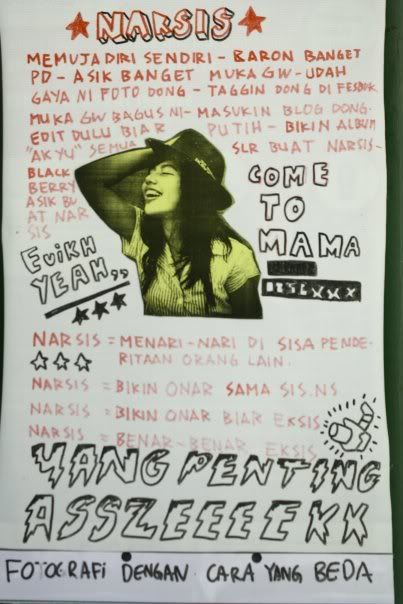 NARSIS
MEMUJA DIRI SENDIRI - BARON BANGET
PD - ASIK BANGET MUKA GW - UDAH
GAYA NI FOTO DONG - TAGGIN DONG DI FESBUK
MUKA GW BAGUS NI - MASUKIN BLOG DONG.
EDIT DULU BIAR PUTIH - BIKIN ALBUM
"AKYU" SEMUA SLR BUAT NARSIS -
BLACK
BERRY
ASIK BU
AT NAR
SIS
COME
TO
MAMA
EUIKH
YEAH
NARSIS = MENARI-NARI DI SISA PENDE-
RITAAN ORANG LAIN.
NARSIS = BIKIN ONAR SAMA SIS.NS
NARSIS = BIKIN ONAR BIAR EKSIS
NARSIS = BENAR-BENAR EKSIS
YANG PENTING
ASSZEEEEEKK
FOTOGRAFI DENGAN CARA YANG BEDA